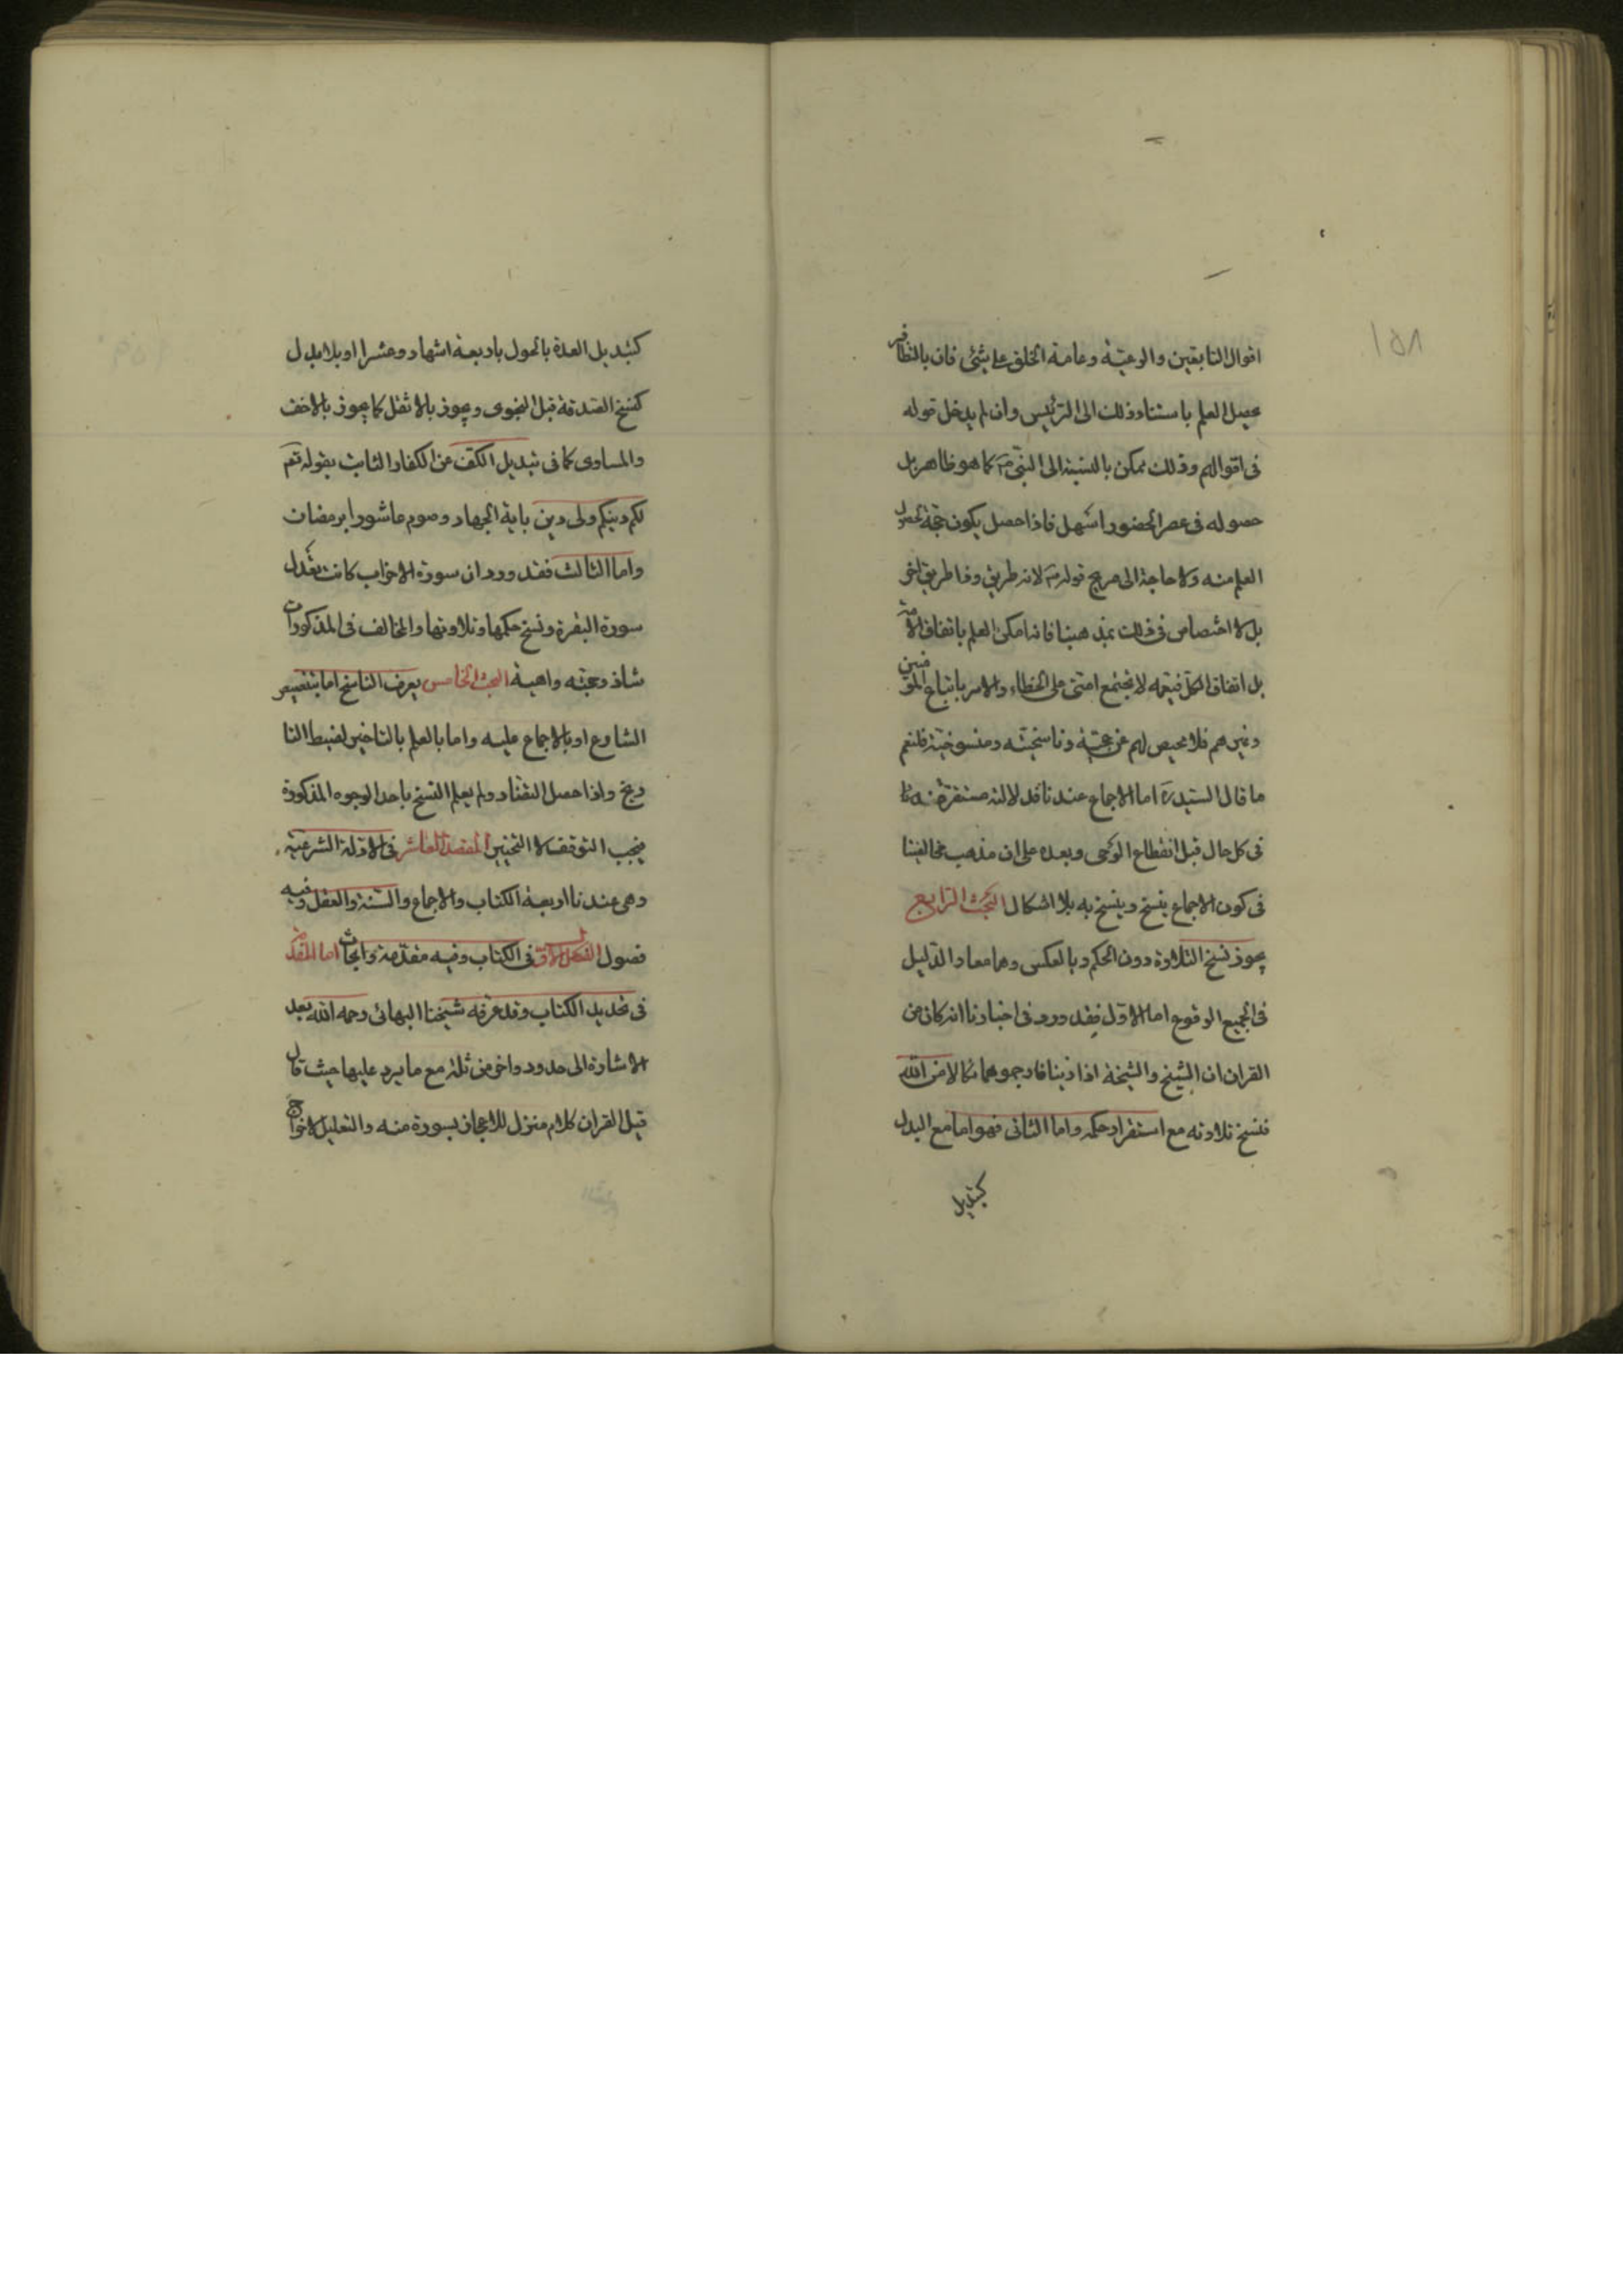 ١٥٨
اقوال التابعين والرعية وعامة الخلق على شئ فان بالتظافر
يحصل العلم باستناد ذلك الى الرئيس وان لم يدخل قوله
فى اقوالهم وذلك ممكن بالنسبة الى النبى ص كما هو ظاهر بل
حصوله فى عصر الحضور اسهل فاذا حصل يكون حجة لحصول
العلم منه ولا حاجة الى صريح قوله لانه طريق وذا طريق اخر
بل لا اختصاص فى ذلك بمذهبنا فانه امكن العلم باتفاق الامة
بل اتفاق الكل فيعمه لا تجتمع امتى على الخطاء والامر باتباع المؤمنين
وغيرهم فلا محيص لهم عن حجيته وناسخيته ومنسوخيته فلنعم
ما قال السيد ره اما الاجماع عندنا فدلالته مستقرة
فى كل حال قبل انقطاع الوحى وبعده على ان مذهب مخالفينا
فى كون الاجماع ينسخ وينسخ به بلا اشكال البحث الرابع
يجوز نسخ التلاوة دون الحكم وبالعكس وهما معا والدليل
فى الجميع الوقوع اما الاول فقد ورد فى اخبارنا انه كان من
القران ان الشيخ والشيخة اذا زينا فارجموهما نكالا من الله
فنسخ تلاوته مع استقرار حكمه واما الثانى فهو اما مع البدل
كتبديل
كتبديل العدة بالحول باربعة اشهار وعشرا او بلا بدل
كنسخ الصدقة قبل النجوى ويجوز بالاثقل كما يجوز بالاخف
والمساوى كما فى تبديل الكف عن الكفار الثابت بقوله تعم
لكم دينكم ولى دين باية الجهاد وصوم عاشورا برمضان
واما الثالث فقد ورد ان سورة الاحزاب كانت تعدل
سورة البقرة ونسخ حكمها وتلاوتها والمخالف فى المذكورات
شاذ وحجته واهية البحث الخامس يعرف الناسخ اما بتنصيص
الشارع او بالاجماع عليه واما بالعلم بالتاخير لضبط التا
ريخ واذا حصل التضاد ولم يعلم النسخ باحد الوجوه المذكورة
فيجب التوقف لا التخيير المقصد العاشر فى الادلة الشرعية
وهى عندنا اربعة الكتاب والاجماع والسنة والعقل وفيه
فصول الفصل الاول فى الكتاب وفيه مقدمة وابحاث اما المقدمة
فى تحديد الكتاب وقد عرفه شيخنا البهائى رحمه الله بعد
الاشارة الى حدود واخر من ثلثة مع ما يرد عليها حيث قال
قيل القران كلام منزل للاعجاز بسورة منه والتعليل لاخراج